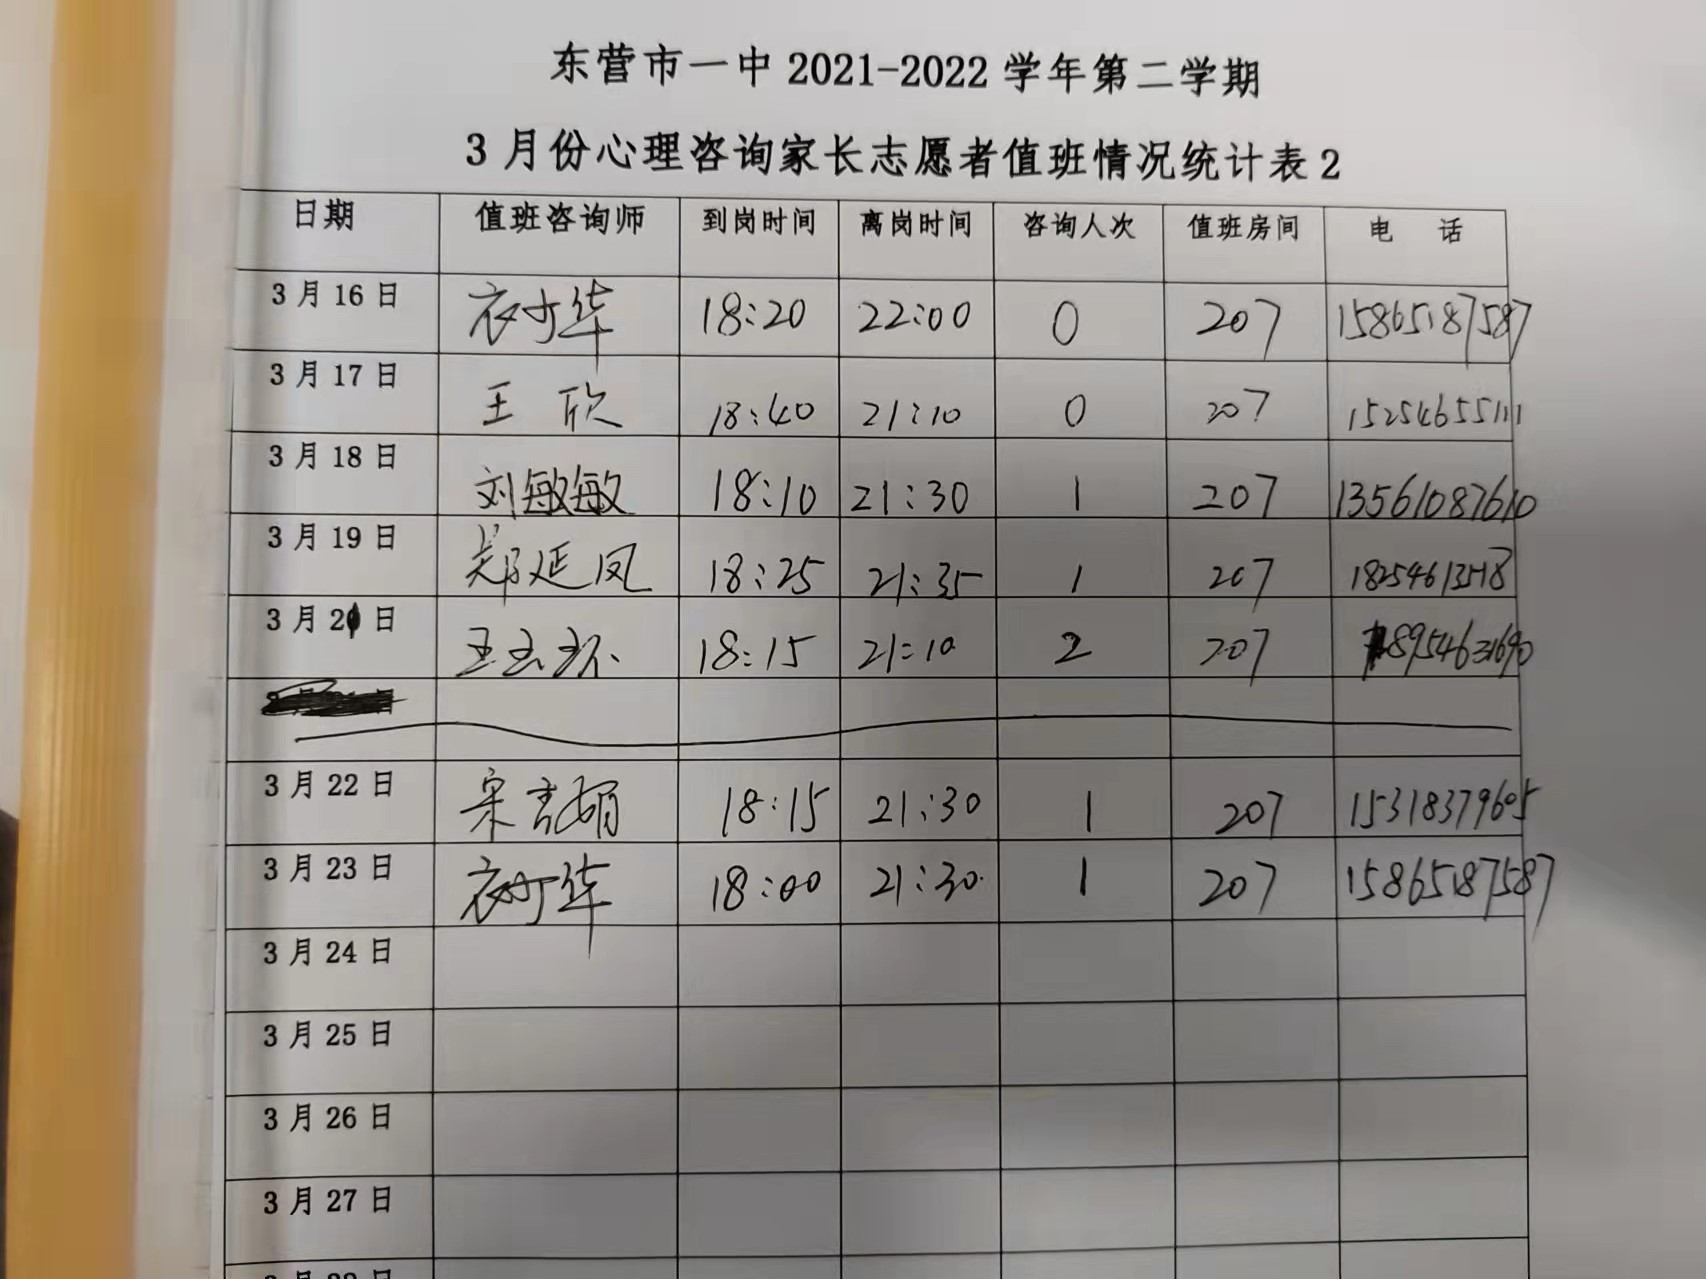 东营市一中 2021-2022 学年第二学期
3 月份心理咨询家长志愿者值班情况统计表 2
日期 值班咨询师 到岗时间 离岗时间 咨询人次 值班房间 电 话
3 月 16 日 衣少华 18:20 22:00 0 207 15865187587
3 月 17 日 王 欣 18:40 21:10 0 207 15254655111
3 月 18 日 刘敏敏 18:10 21:30 1 207 13561087610
3 月 19 日 郑延凤 18:25 21:35 1 207
3 月 21 日 王玉环 18:15 21:10 2 207 18954631690
3 月 22 日 18:15 21:30 1 207 15318379605
3 月 23 日 衣少华 18:00 21:30 1 207 15865187587
3 月 24 日
3 月 25 日
3 月 26 日
3 月 27 日